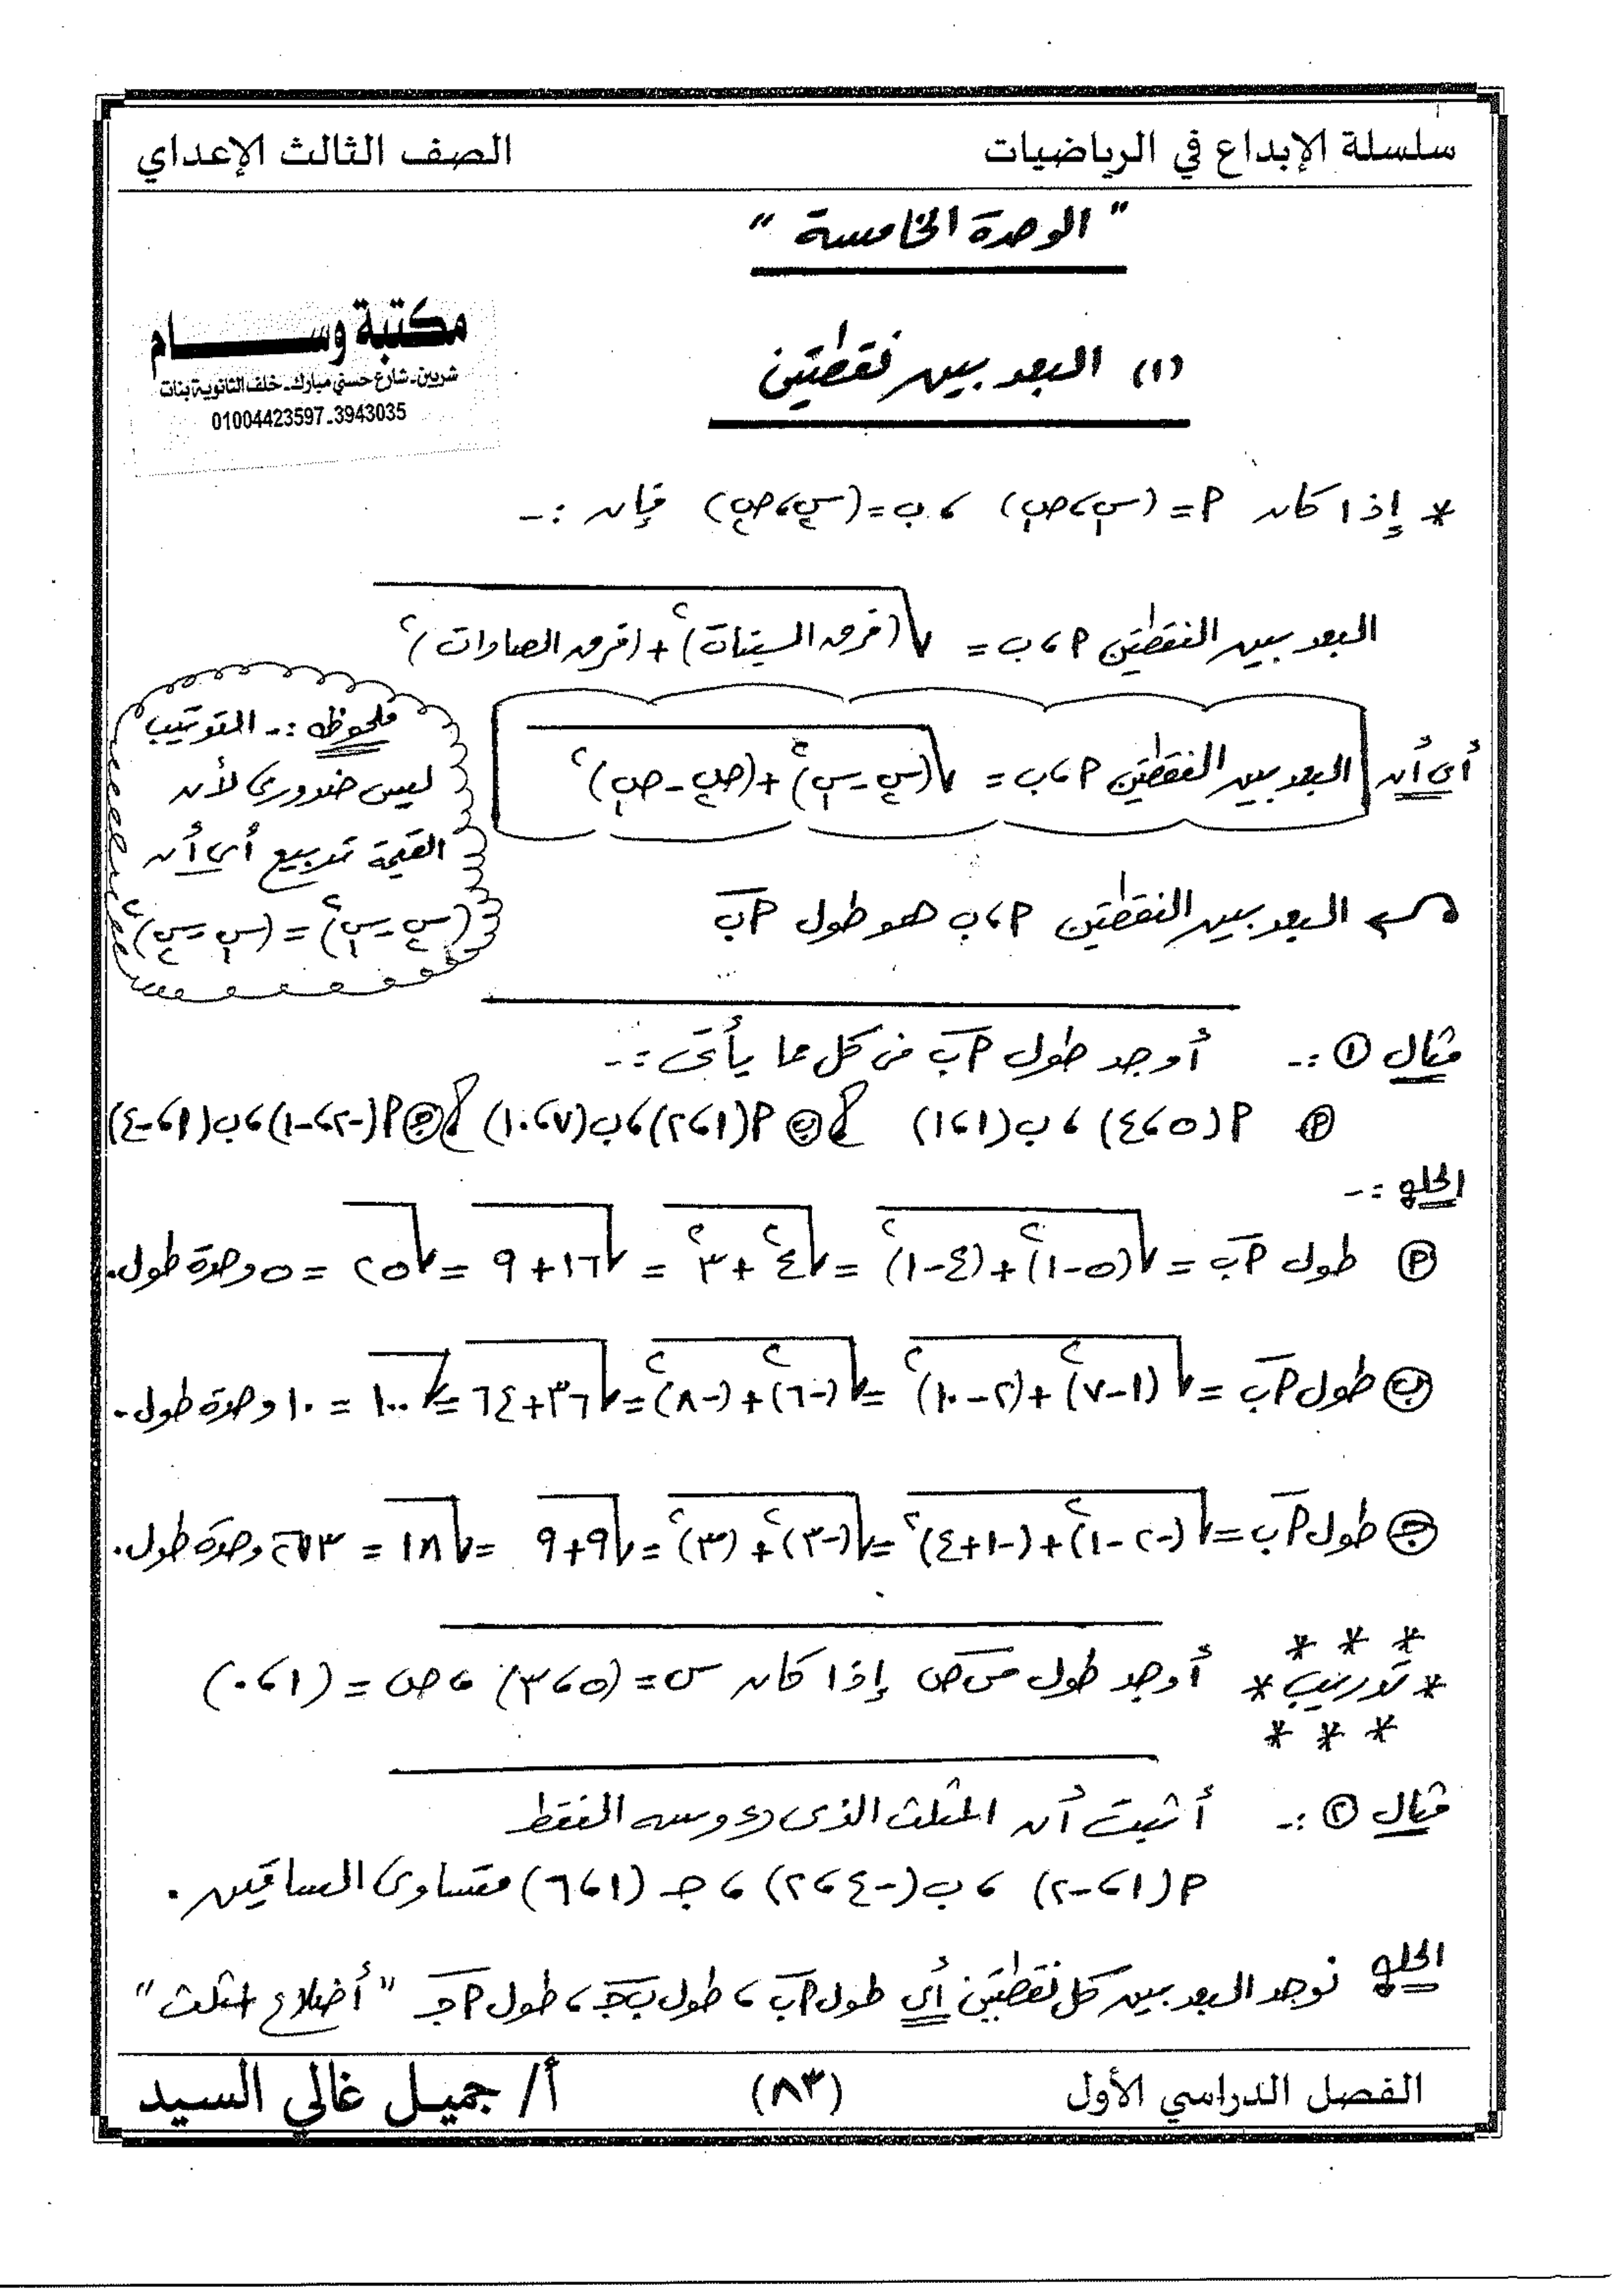 سلسلة الإبداع في الرياضيات
الصف الثالث الإعداي
" الوحدة الخامسة "
مكتبة وسـام
شربين - شارع حسني مبارك - خلف الثانوية بنات
01004423597 - 3943035
(١) البعد بين نقطتين
* إذا كان P = (س₁ ، ص₁) ، ب = (س₂ ، ص₂) فإن :-
البعد بين النقطتين P ، ب = √((فرق السينات)² + (فرق الصادات)²)
أى أن البعد بين النقطتين P ، ب = √((س₂ - س₁)² + (ص₂ - ص₁)²)
ملحوظه :- الترتيب
ليس ضرورى لأن
القيمة تربيع أى أن
(س₂ - س₁)² = (س₁ - س₂)²
البعد بين النقطتين P ، ب هو طول Pب
مثال ① :- أوجد طول Pب فى كل مما يأتى :-
Ⓟ P(٥ ، ٤) ، ب(١ ، ١) ⓑ P(١ ، ٢) ، ب(٧ ، ١٠) ⓙ P(-٢ ، -١) ، ب(١ ، -٤)
الحل :-
Ⓟ طول Pب = √((٥-١)² + (٤-١)²) = √(٤² + ٣²) = √(١٦ + ٩) = √٢٥ = ٥ وحدة طول.
ب طول Pب = √((١-٧)² + (٢-١٠)²) = √((-٦)² + (-٨)²) = √(٣٦ + ٦٤) = √١٠٠ = ١٠ وحدة طول.
ج طول Pب = √((-٢-١)² + (-١+٤)²) = √((-٣)² + (٣)²) = √(٩ + ٩) = √١٨ = ٣√٢ وحدة طول.
* تدريب * أوجد طول س ص إذا كان س = (٥ ، ٣) ، ص = (١ ، ٠)
مثال ② :- أثبت أن المثلث الذى رءوسه النقط
P(١ ، -٢) ، ب(-٤ ، ٢) ، جـ (١ ، ٦) متساوى الساقين .
الحل نوجد البعد بين كل نقطتين أى طول Pب ، طول بجـ ، طول Pجـ " أضلاع المثلث "
الفصل الدراسي الأول
(٨٣)
أ/ جميل غالي السيد